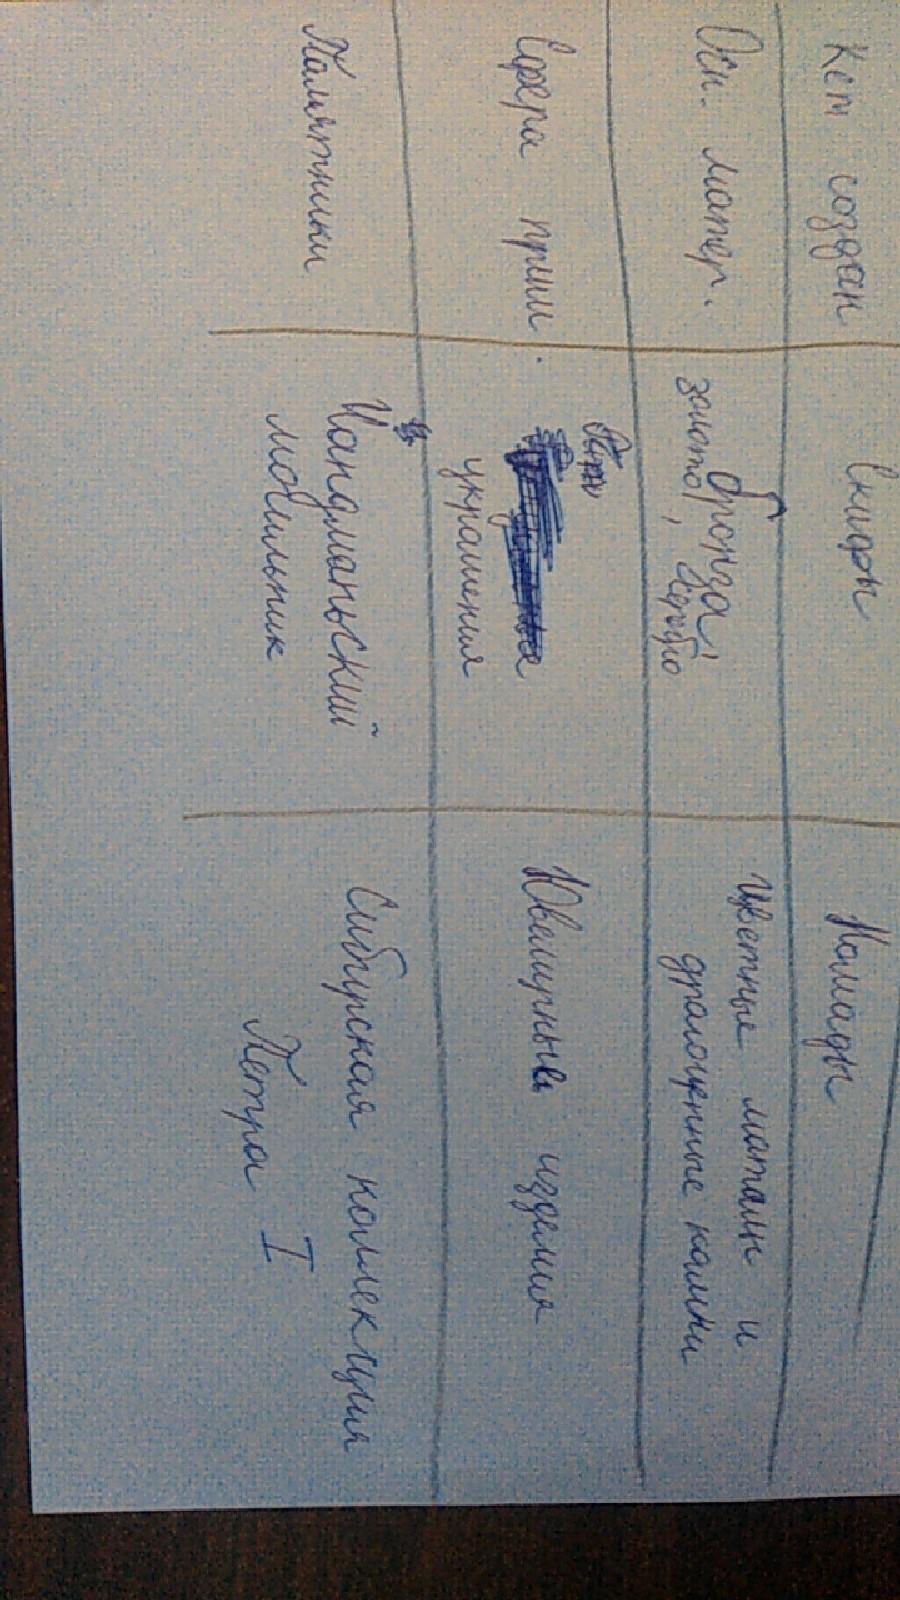 Кем создан
Скифы
Номады
Осн. матер.
бронза,
золото, серебро
Цветные маталы и
драгоценные камни
Сфера прим.
украшения
Ювелирные изделия
Памятники
Чандманьский
могильник
Сибирская коллекция
Петра I